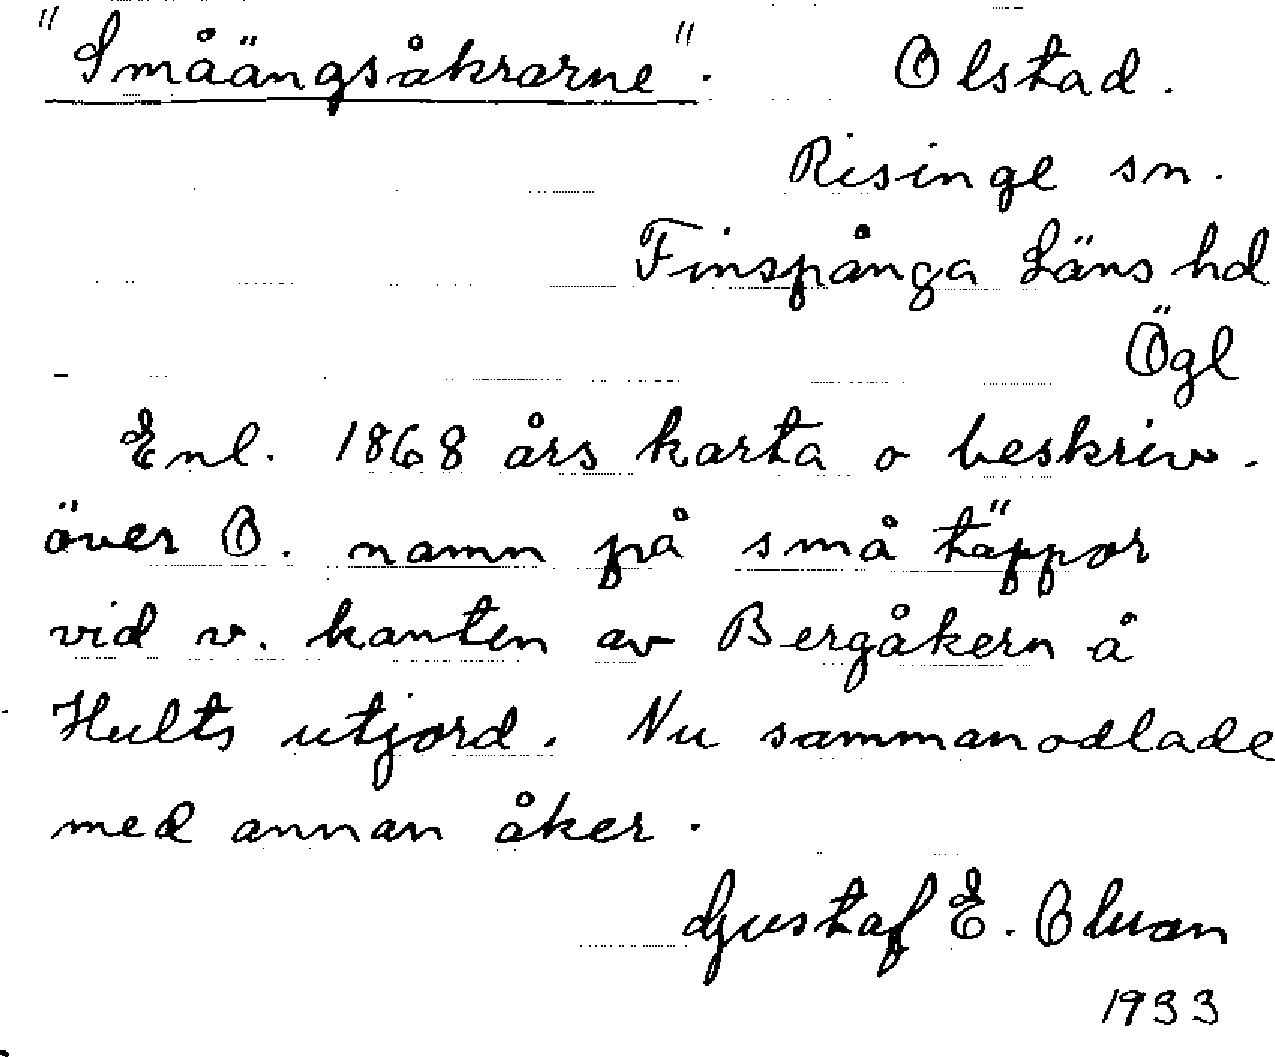 "Småängsåkrarne". Olstad.
Risinge sn.
Finspånga Läns hd
Ögl
Enl. 1868 års karta o beskriv.
över O. namn på små täppor
vid v. kanten av Bergåkern å
Hults utjord. Nu sammanodlade
med annan åker.
Gustaf E.
1933